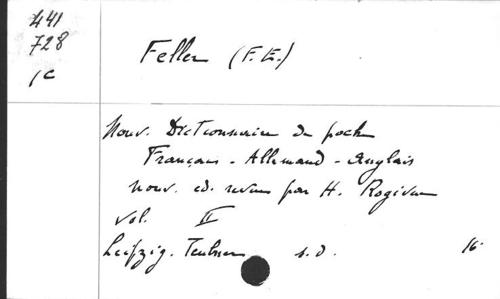 441
728
1C
Feller (F.E.)
Nouv. Dictionnaire de poche
Français - Allemand - Anglais
nouv. éd. revue par H.
Vol. II
Leipzig. Teubner s.d. 16.